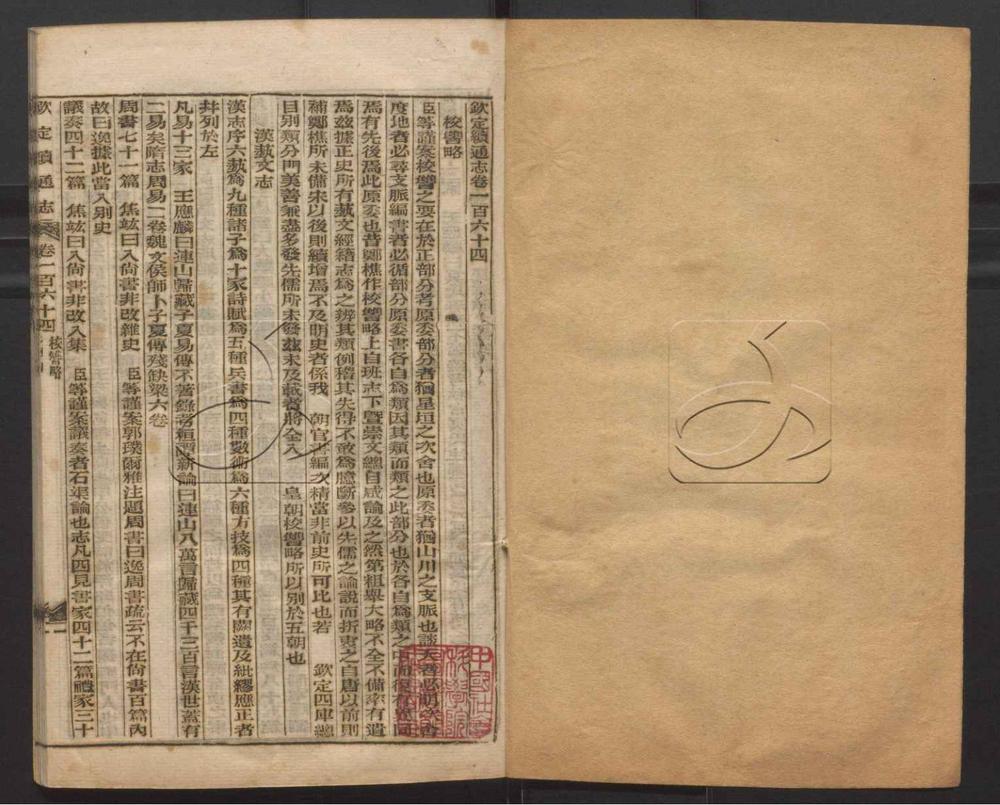 欽定續通志卷一百六十四
校讐略
臣等謹案校讐之要在於正部分考原委部分者猶星垣之次舍也原委者猶山川之支脈也談天者必明次舍
度地者必尋支脈編書者必循部分原委書各自為類因其類而類之此部分也於各自為類之中而復有
焉有先後焉此原委也昔鄭樵作校讐略上自班志下暨崇文總目咸論及之然第粗舉大略不全不備率有遺
焉茲據正史所有藝文經籍志為之辨其類例稽其失得不敢為臆斷參以先儒之論說而折衷之自唐以前則
補鄭樵所未備宋以後則續增焉不及明史者係我　朝官書編次精當非前史所可比也若　欽定四庫總
目別類分門美善兼盡多發先儒所未發茲未及載者將全入　皇朝校讐略所以別於五朝也
漢藝文志
漢志序六藝為九種諸子為十家詩賦為五種兵書為四種數術為六種方技為四種其有闕遺及紕繆應正者
并列於左
凡易十三家　王應麟曰連山歸藏子夏易傳不著錄考桓譚新論曰連山八萬言歸藏四千三百言漢世蓋有
二易矣隋志周易二卷魏文侯師卜子夏傳殘缺梁六卷
周書七十一篇　焦竑曰入尚書非改雜史　臣等謹案郭璞爾雅注題周書曰逸周書疏云不在尚書百篇內
故曰逸據此當入別史
議奏四十二篇　焦竑曰入尚書非改入集　臣等謹案議奏者石渠論也志凡四見書家四十二篇禮家三十
欽定續通志　卷一百六十四　校讐略　一
中國社會
科學院